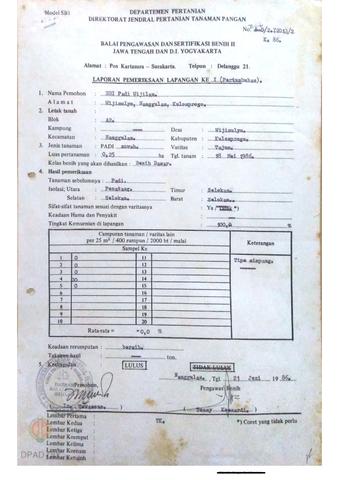 Model SB1
DEPARTEMEN PERTANIAN
DIREKTORAT JENDRAL PERTANIAN TANAMAN PANGAN
K. 86.
BALAI PENGAWASAN DAN SERTIFIKASI BENIH II
JAWA TENGAH DAN D.I. YOGYAKARTA
Alamat : Pos Kartasura - Surakarta. Telpun : Delanggu 21.
LAPORAN PEMERIKSAAN LAPANGAN KE I (Pertumbuhan).
1. Nama Pemohon : BBI Padi Wijilan.
Alamat : Wijimulyo, Nanggulan, Kulonprogo.
2. Letak tanah :
Blok : A2.
Kampung : Desa : Wijimulyo.
Kecamatan : Nanggulan. Kabupaten : Kulonprogo.
3. Jenis tanaman : PADI sawah. Varitas :
Luas pertanaman : 0,25 ha Tgl. tanam : 18 Mei 1986.
Kelas benih yang akan dihasilkan : Benih Dasar.
4. Hasil pemeriksaan
Tanaman sebelumnya : Padi.
Isolasi; Utara : Timur : Selokan.
Selatan : Selokan. Barat : Selokan.
Sifat-sifat tanaman sesuai dengan varitasnya : Ya / *)
Keadaan Hama dan Penyakit :
Tingkat Kemurnian di lapangan : 100,0 %
Campuran tanaman / varitas lain
per 25 m² / 400 rumpun / 2000 bt / malai
Keterangan
Sampel Ke
1 0 11
2 0 12
3 0 13
4 00 14
5 0 15
6 16
7 17
8 18
9 19
10 20
Tipe simpang.
Rata-rata = 0,0 %
Keadaan rerumputan : bersih.
Taksiran hasil : ton.
5. Kesimpulan : LULUS TIDAK LULUS
Nanggulan. Tgl 21 Juni 1986.
Pemohon, Pengawas Benih
Lembar Pertama : TK. *) Coret yang tidak perlu
Lembar Kedua
Lembar Ketiga
Lembar Keempat
Lembar Kelima
Lembar Keenam
Lembar Ketujuh
DPAD